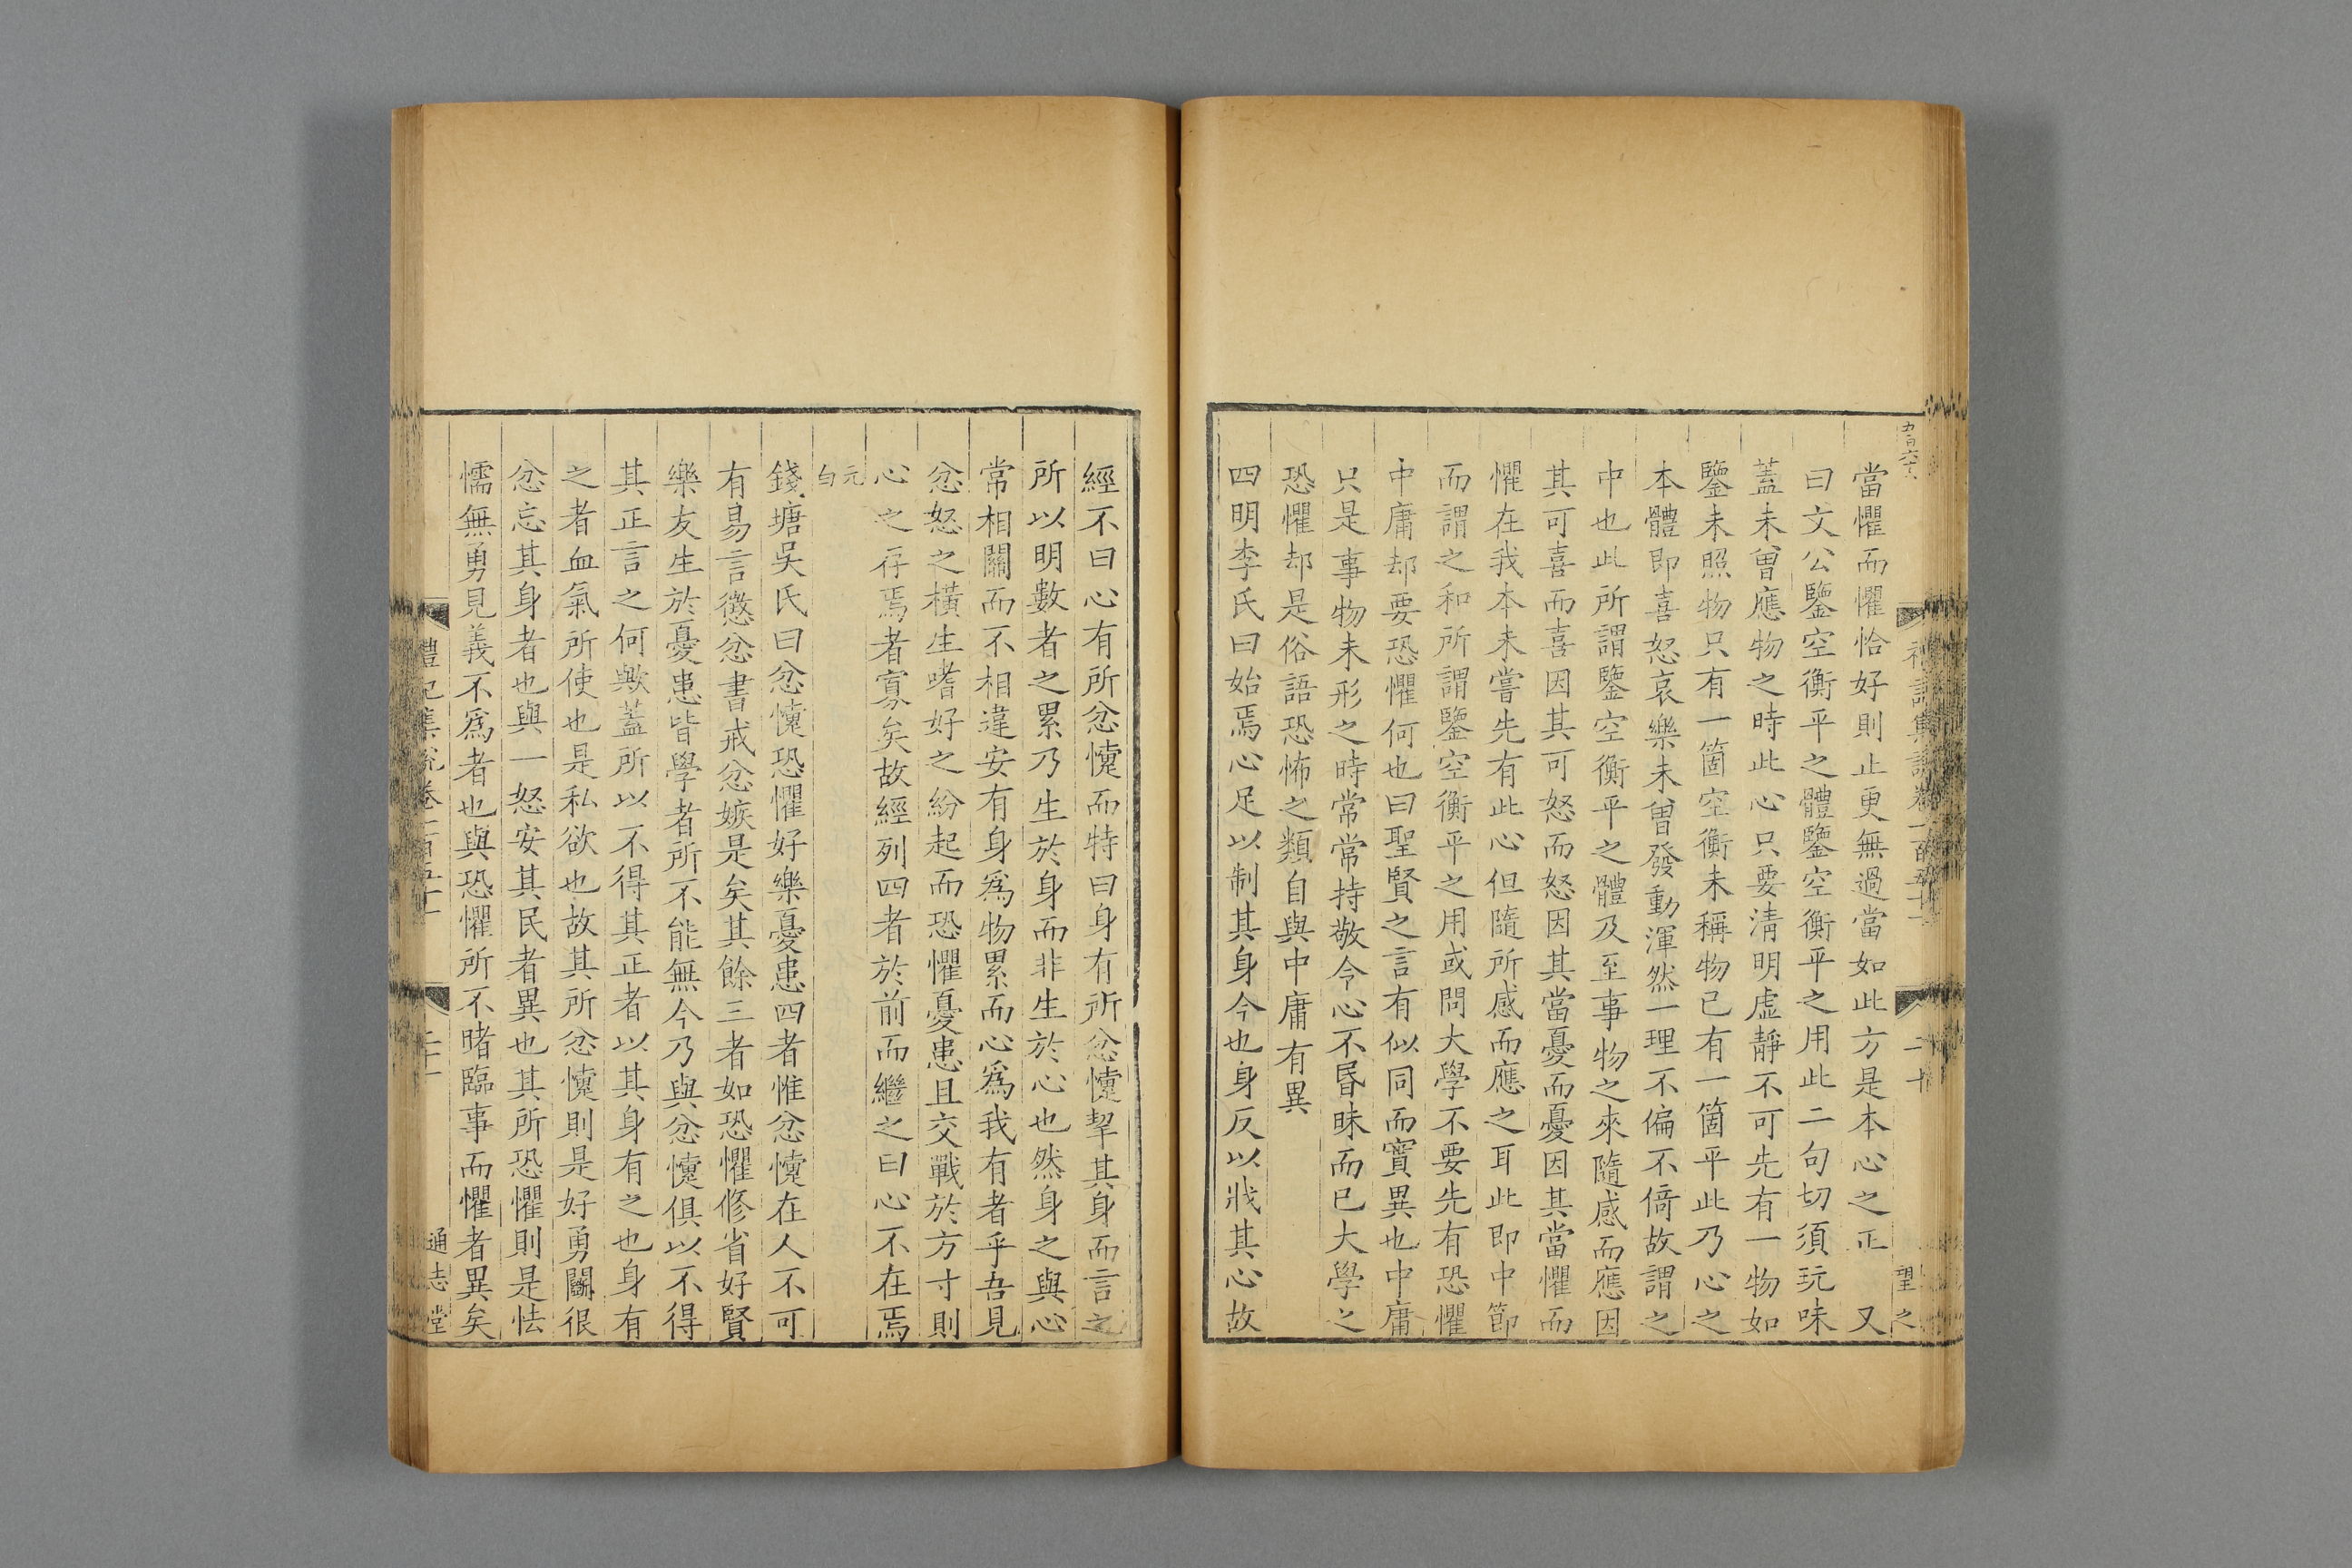 當懼而懼恰好則止更無過當如此方是本心之正 又
曰文公鑒空衡平之體鑒空衡平之用此二句切須玩味
蓋未曾應物之時此心只要淸明虛靜不可先有一物如
鑒未照物只有一箇空衡未稱物已有一箇平此乃心之
本體即喜怒哀樂未曾發動渾然一理不偏不倚故謂之
中也此所謂鑒空衡平之體及至事物之來隨感而應因
其可喜而喜因其可怒而怒因其當憂而憂因其當懼而
懼在我本未嘗先有此心但隨所感而應之耳此即中節
而謂之和所謂鑒空衡平之用或問大學不要先有恐懼
中庸却要恐懼何也曰聖賢之言有似同而實異也中庸
只是事物未形之時常常持敬令心不昬昧而已大學之
恐懼却是俗語恐怖之類自與中庸有異
四明李氏曰始焉心足以制其身今也身反以戕其心故
經不曰心有所忿懥而特曰身有所忿懥挈其身而言之
所以明數者之累乃生於身而非生於心也然身之與心
常相關而不相違安有身爲物累而心爲我有者乎吾見
忿怒之橫生嗜好之紛起而恐懼憂患且交戰於方寸則
心之存焉者寡矣故經列四者於前而繼之曰心不在焉
元
白
錢塘吳氏曰忿懥恐懼好樂憂患四者惟忿懥在人不可
有易言懲忿書戒忿嫉是矣其餘三者如恐懼修省好賢
樂友生於憂患皆學者所不能無今乃與忿懥俱以不得
其正言之何歟蓋所以不得其正者以其身有之也身有
之者血氣所使也是私欲也故其所忿懥則是好勇鬭很
忿忘其身者也與一怒安其民者異也其所恐懼則是怯
懦無勇見義不爲者也與恐懼所不睹臨事而懼者異矣
禮記集說卷一百五十一
二十
望之
通志堂